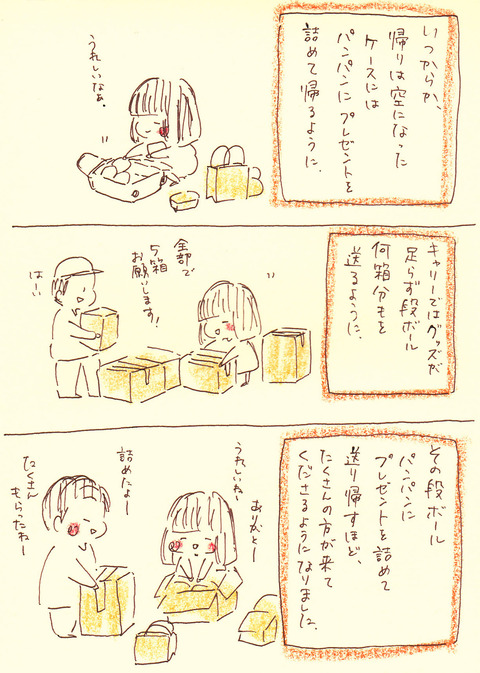 いつからか、
帰りは空になった
ケースには
パンパンにプレゼントを
詰めて帰るように、
うれしいなぁ。
キャリーではグッズが
足らず段ボール
何箱分もを
送るように、
全部で
5箱
お願いします!
はーい
その段ボール
パンパンに
プレゼントを詰めて
送り帰すほど、
たくさんの方が来て
くださるようになりました。
ありがとー
うれしいねー
詰めたよー
たくさん
もらったねー